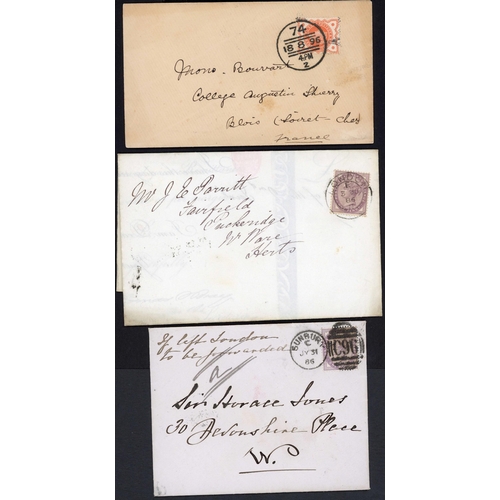 74
18 8 96
4 PM
2
Mons. Bouvart
College Augustin Thierry
Blois (Loiret Cher)
France
Mr J E Parritt
Fairfield
Puckeridge
Nr Ware
Herts
If left London
to be forwarded
SUNBURY
C
JY 31
86
C96
Sir Horace Jones
30 Devonshire Place
W.